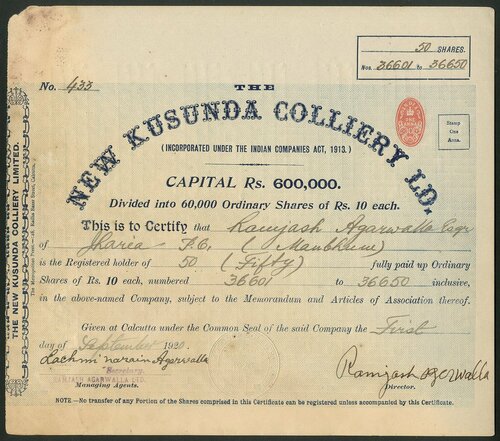 50 SHARES.
Nos. 36601 to 36650
No. 433
THE
NEW KUSUNDA COLLIERY LD.
(INCORPORATED UNDER THE INDIAN COMPANIES ACT, 1913.)
Stamp
One
Anna.
CAPITAL Rs. 600,000.
Divided into 60,000 Ordinary Shares of Rs. 10 each.
This is to Certify that Ramjash Agarwalla Esqr
of Jharia P.O. (Manbhum)
is the Registered holder of 50 (Fifty) fully paid up Ordinary
Shares of Rs. 10 each, numbered 36601 to 36650 inclusive,
in the above-named Company, subject to the Memorandum and Articles of Association thereof.
Given at Calcutta under the Common Seal of the said Company the First
day of September 1920.
Lachmi narain Agarwalla
Secretary.
RAMJASH AGARWALLA LTD.
Managing Agents.
Ramjash Agarwalla
Director.
NOTE.—No transfer of any Portion of the Shares comprised in this Certificate can be registered unless accompanied by this Certificate.
THE NEW KUSUNDA COLLIERY LIMITED.